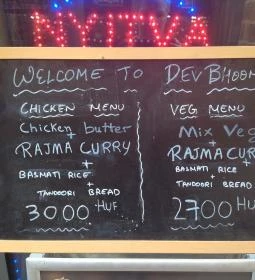 NYITVA
WELCOME TO DEV BHOOM
CHICKEN MENU
Chicken butter
+
RAJMA CURRY
+
BASMATI RICE
+
TANDOORI BREAD
3000 HUF
VEG MENU
Mix Veg
+
RAJMA CUR
+
BASMATI RICE
+
TANDOORI BREAD
2700 HU